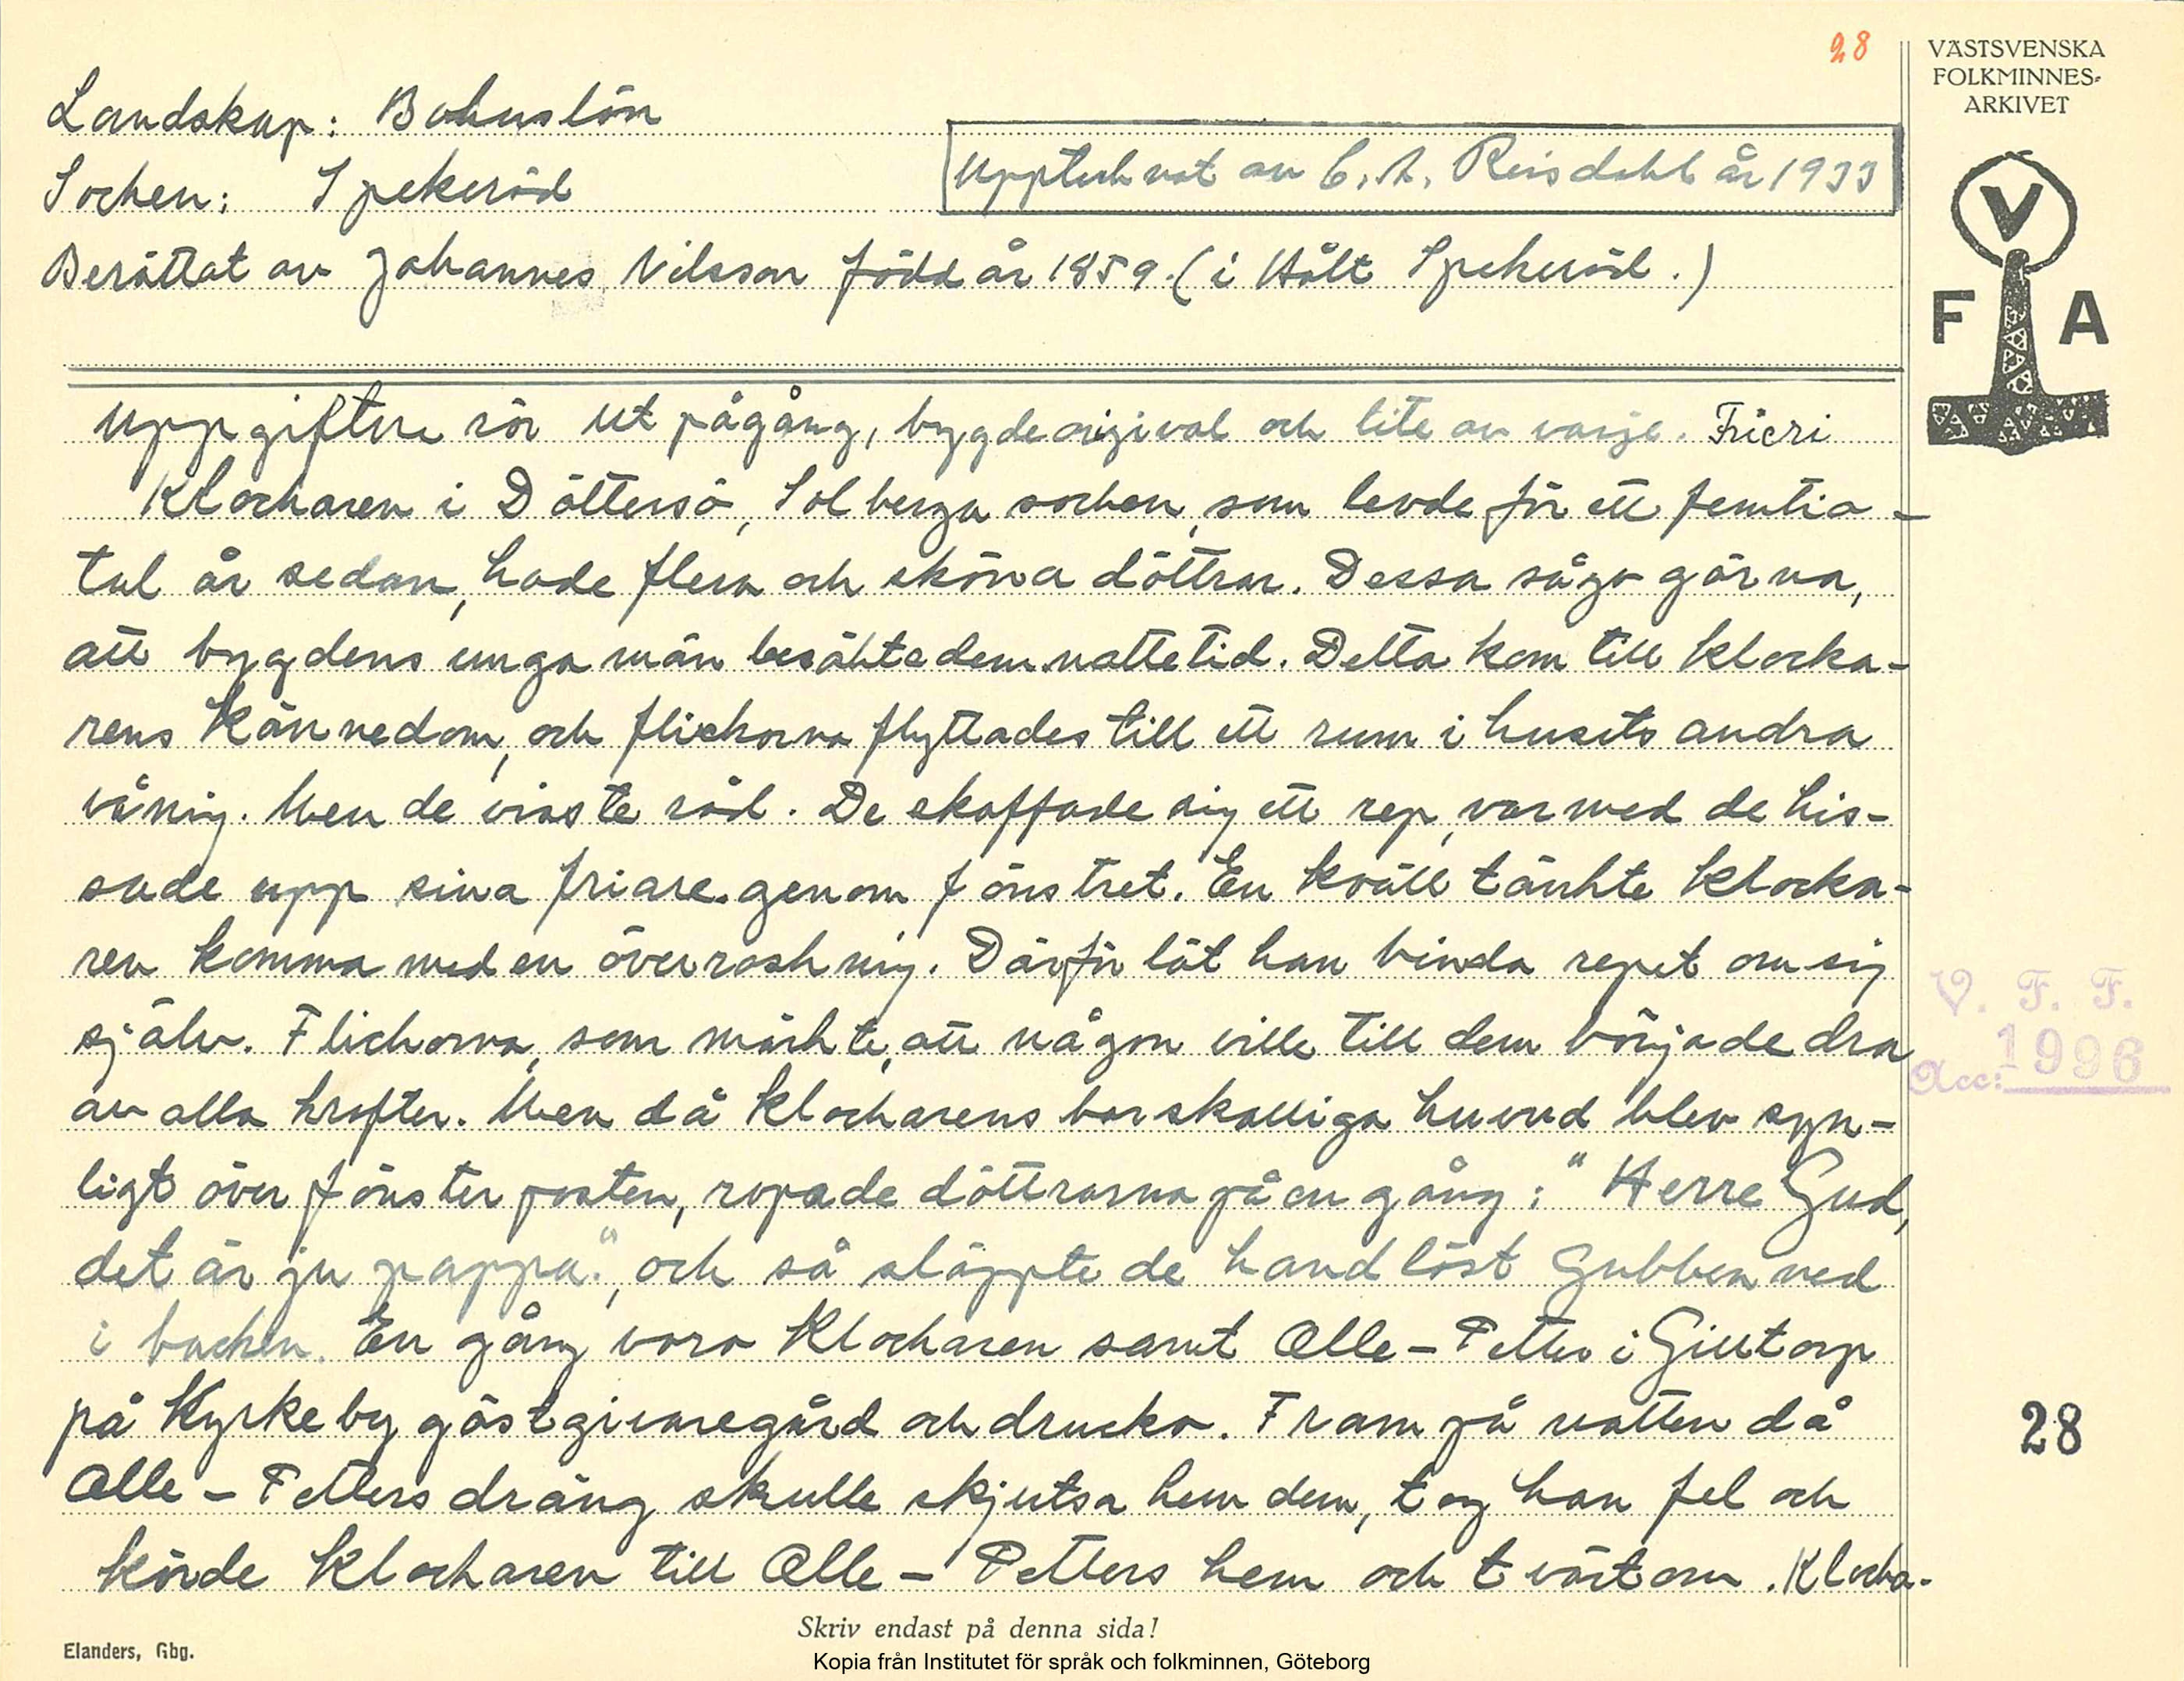 28
VÄSTSVENSKA
FOLKMINNES-
ARKIVET
Landskap: Bohuslän
Upptecknat av C. A. Reisdahl år 1933
Socken: Spekeröd
Berättat av Johannes Nilsson född år 1859. (i Hålt Spekeröd.)
V
F A
Uppgifterna rör utpågång, bygdeoriginal och lite av varje. Frieri
Klockaren i Döttersö, Solberga socken, som levde för ett femtio-
tal år sedan, hade flera och sköna döttrar. Dessa sågo gärna,
att bygdens unga män besökte dem nattetid. Detta kom till klocka-
rens kännedom, och flickorna flyttades till ett rum i husets andra
våning. Men de visste råd. De skaffade sig ett rep, varmed de his-
sade upp sina friare genom fönstret. En kväll tänkte klocka-
ren komma med en överraskning. Därför lät han binda repet om sig
själv. Flickorna, som märkte, att någon ville till dem började dra
av alla krafter. Men då klockarens barskalliga huvud blev syn-
ligt över fönsterposten, ropade döttrarna på en gång: "Herre Gud,
det är ju pappa.", och så släppte de handlöst gubben ned
i backen. En gång voro Klockaren samt Olle-Petter i Gilltorp
på Kyrkeby gästgivaregård och drucko. Fram på natten då
Olle-Petters dräng skulle skjutsa hem dem, tog han fel och
körde Klockaren till Olle-Petters hem och tvärtom. Klocka-
V. F. F.
Acc: 1996
28
Skriv endast på denna sida!
Elanders, Gbg.
Kopia från Institutet för språk och folkminnen, Göteborg